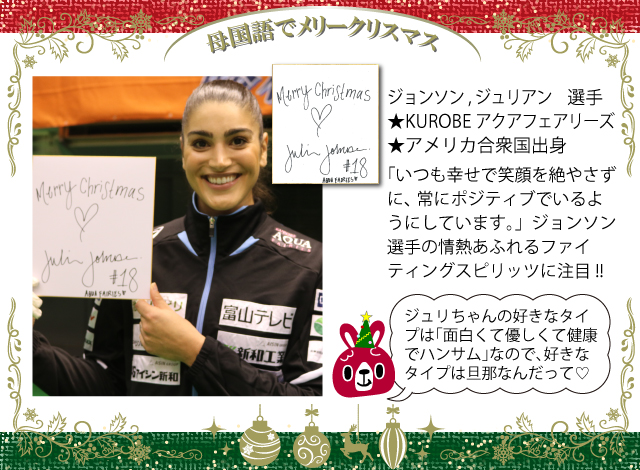 母国語でメリークリスマス
Merry Christmas
♡
#18
Merry Christmas
♡
#18
AQUA
富山テレビ
新和工
アイシン新和
ジョンソン,ジュリアン 選手
★KUROBEアクアフェアリーズ
★アメリカ合衆国出身
「いつも幸せで笑顔を絶やさず
に、常にポジティブでいるよ
うにしています。」ジョンソン
選手の情熱あふれるファイ
ティングスピリッツに注目!!
ジュリちゃんの好きなタイ
プは「面白くて優しくて健康
でハンサム」なので、好きな
タイプは旦那なんだって♡